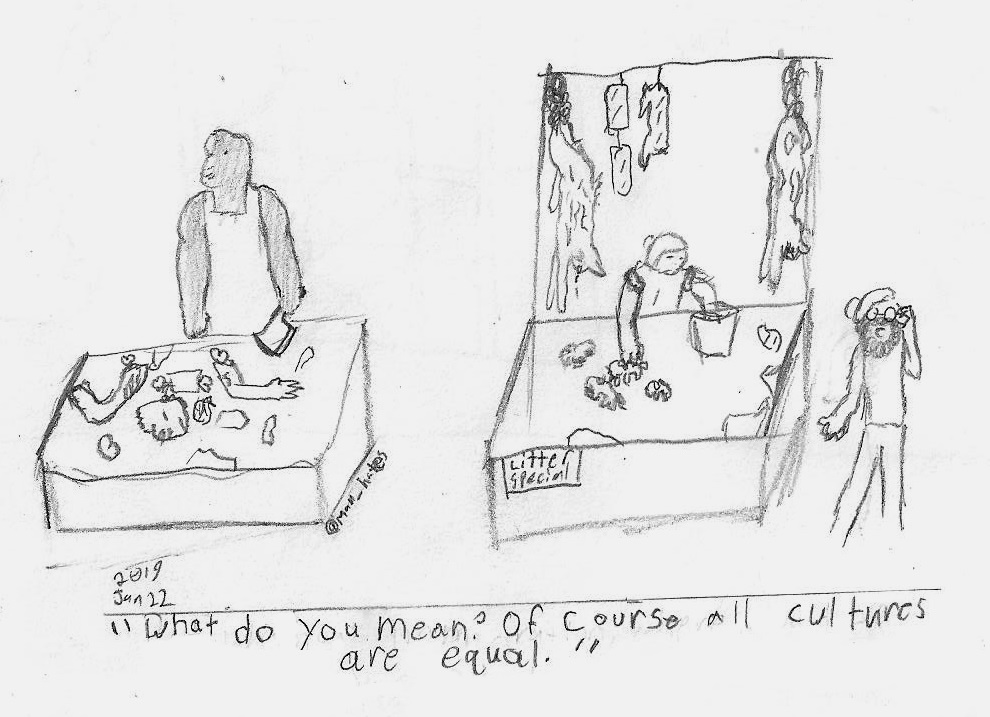 Litter
special
2019
Jan 22
"What do you mean? Of course all cultures
are equal."